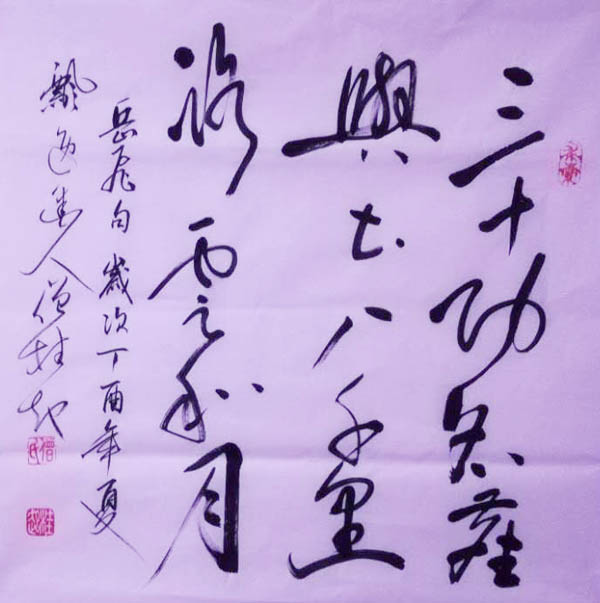 三十功名塵
與土八千里
路雲和月
岳飛句 歲次丁酉年夏
飄逸人僧桂